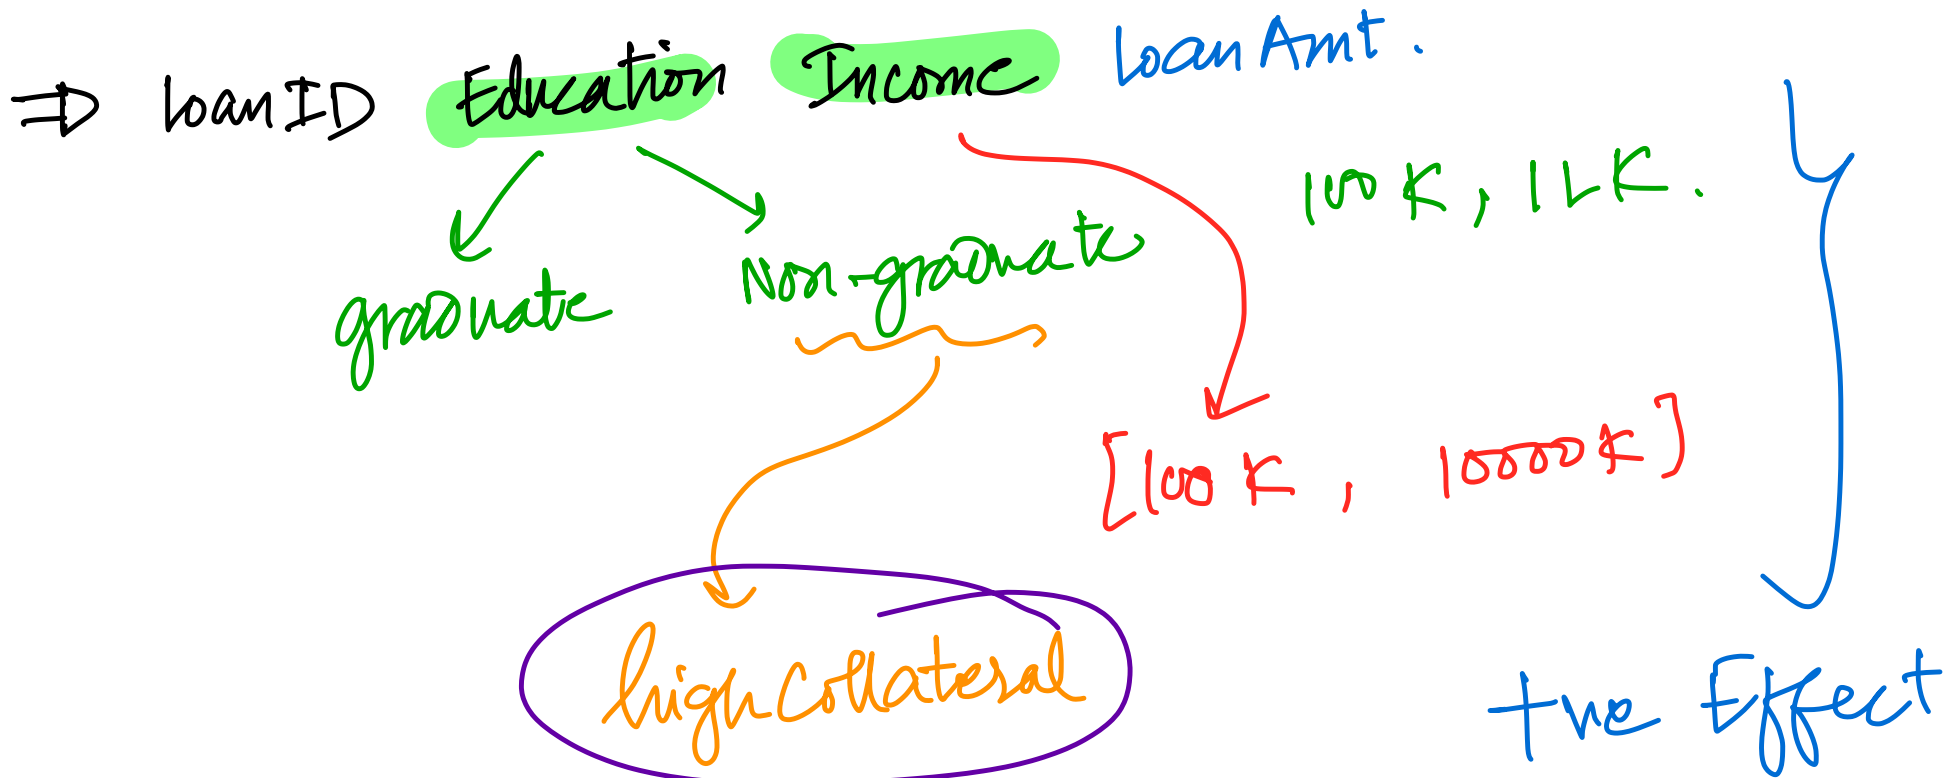 ⇒ LoanID Education Income LoanAmt.
100K, 1LK.
graduate Non-graduate
[100K, 10000K]
high collateral
+ve Effect